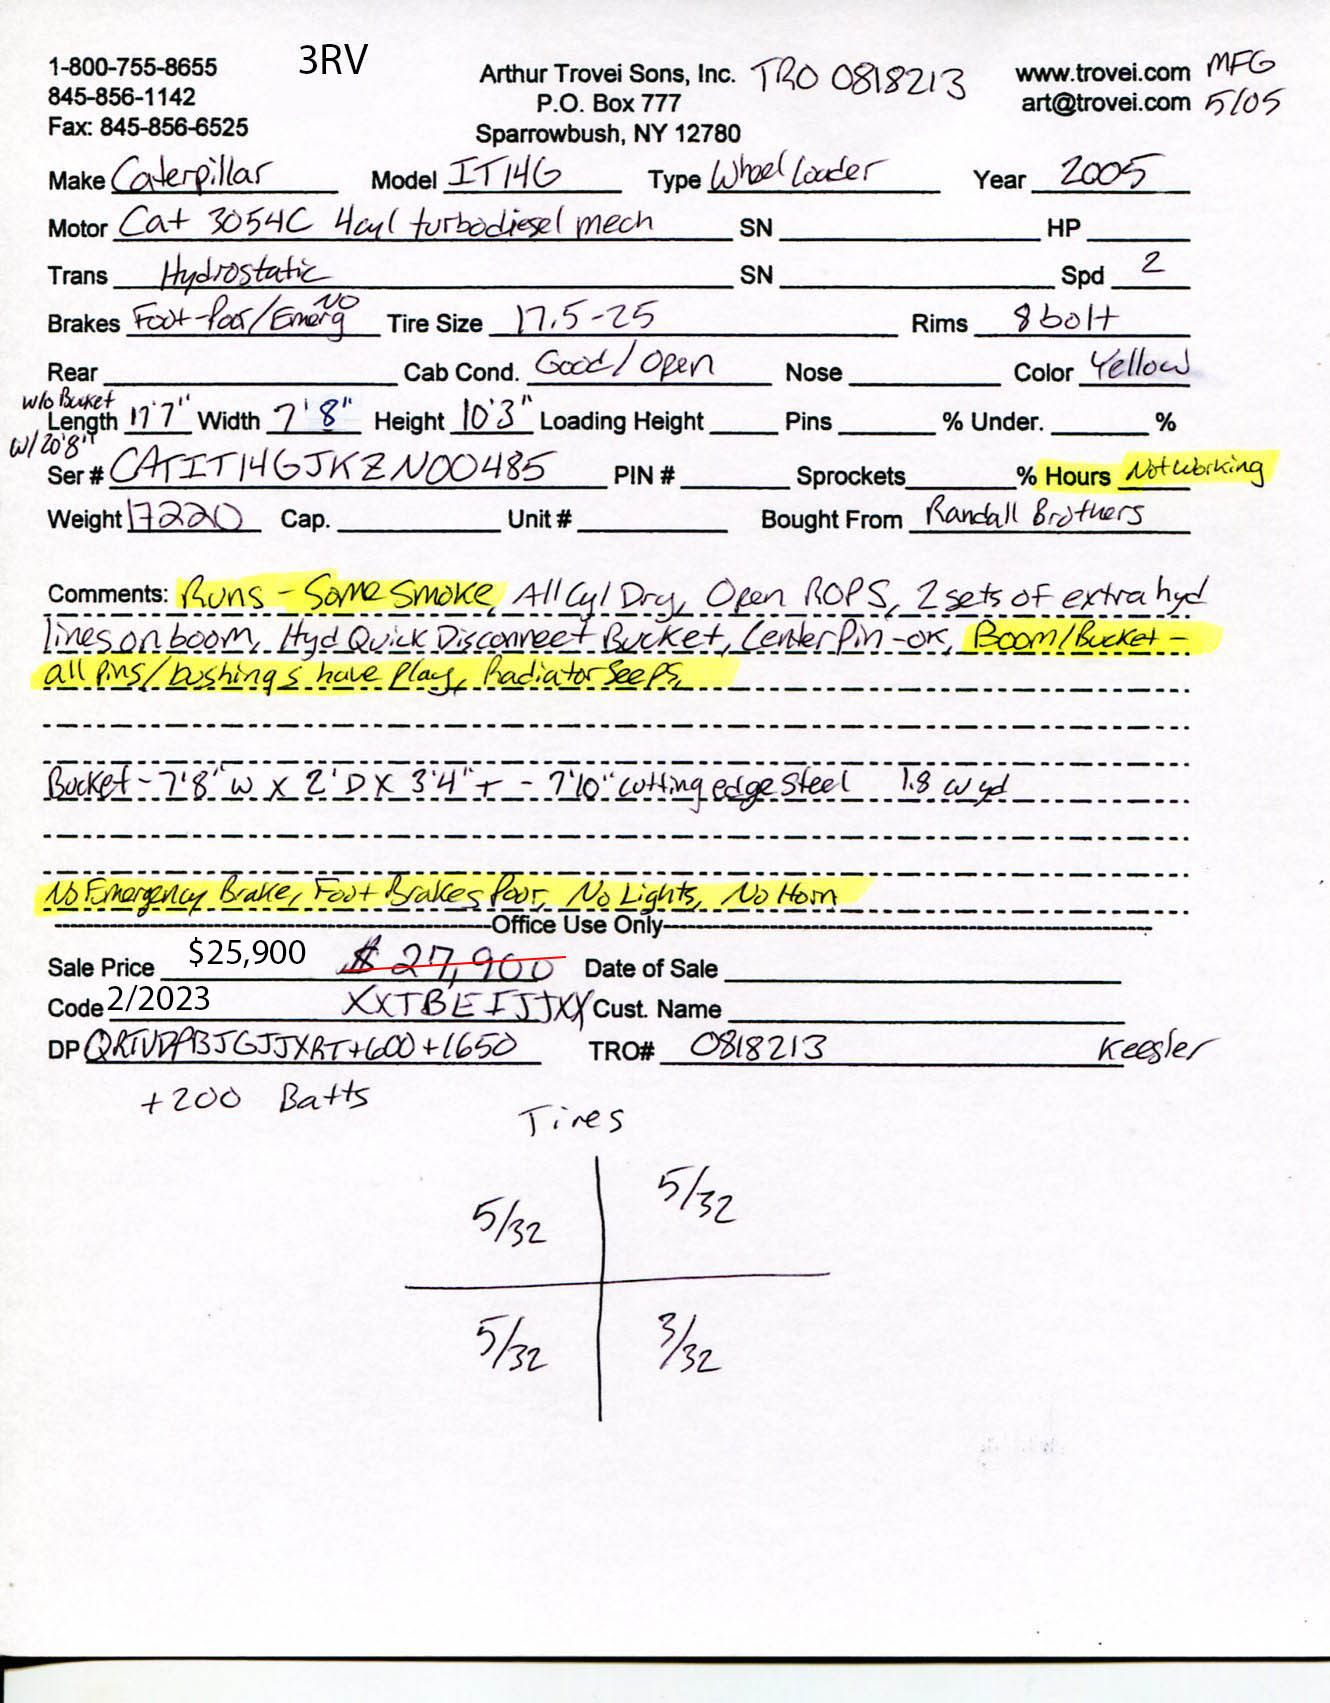 1-800-755-8655 3RV Arthur Trovei Sons, Inc. TRO 0818213 www.trovei.com MFG
845-856-1142 P.O. Box 777 art@trovei.com 5/05
Fax: 845-856-6525 Sparrowbush, NY 12780
Make Caterpillar Model IT14G Type Wheel Loader Year 2005
Motor Cat 3054C 4cyl turbodiesel mech SN HP
Trans Hydrostatic SN Spd 2
Brakes Foot-Poor/Emerg NO Tire Size 17.5-25 Rims 8 bolt
Rear Cab Cond. Good/Open Nose Color Yellow
w/o Bucket
Length 17'7" Width 7'8" Height 10'3" Loading Height Pins % Under. %
w/ 20'8"
Ser # CATIT14GJKZN00485 PIN # Sprockets % Hours Not Working
Weight 17220 Cap. Unit # Bought From Randall Brothers
Comments: Runs - Some Smoke, All Cyl Dry, Open ROPS, 2 sets of extra hyd
lines on boom, Hyd Quick Disconnect Bucket, Center Pin -ok, Boom/Bucket -
all pins/bushings have play, Radiator Seeps,
Bucket - 7'8" W X 2' D X 3'4" T - 7'10" cutting edge steel 1.8 yd
No Emergency Brake, Foot Brakes Poor, No Lights, No Horn
Office Use Only
Sale Price $25,900 $27,900 Date of Sale
Code 2/2023 XXTBEIJJXX Cust. Name
DP +600+1650 TRO# 0818213 Keesler
+200 Batts
Tires
5/32 5/32
5/32 3/32